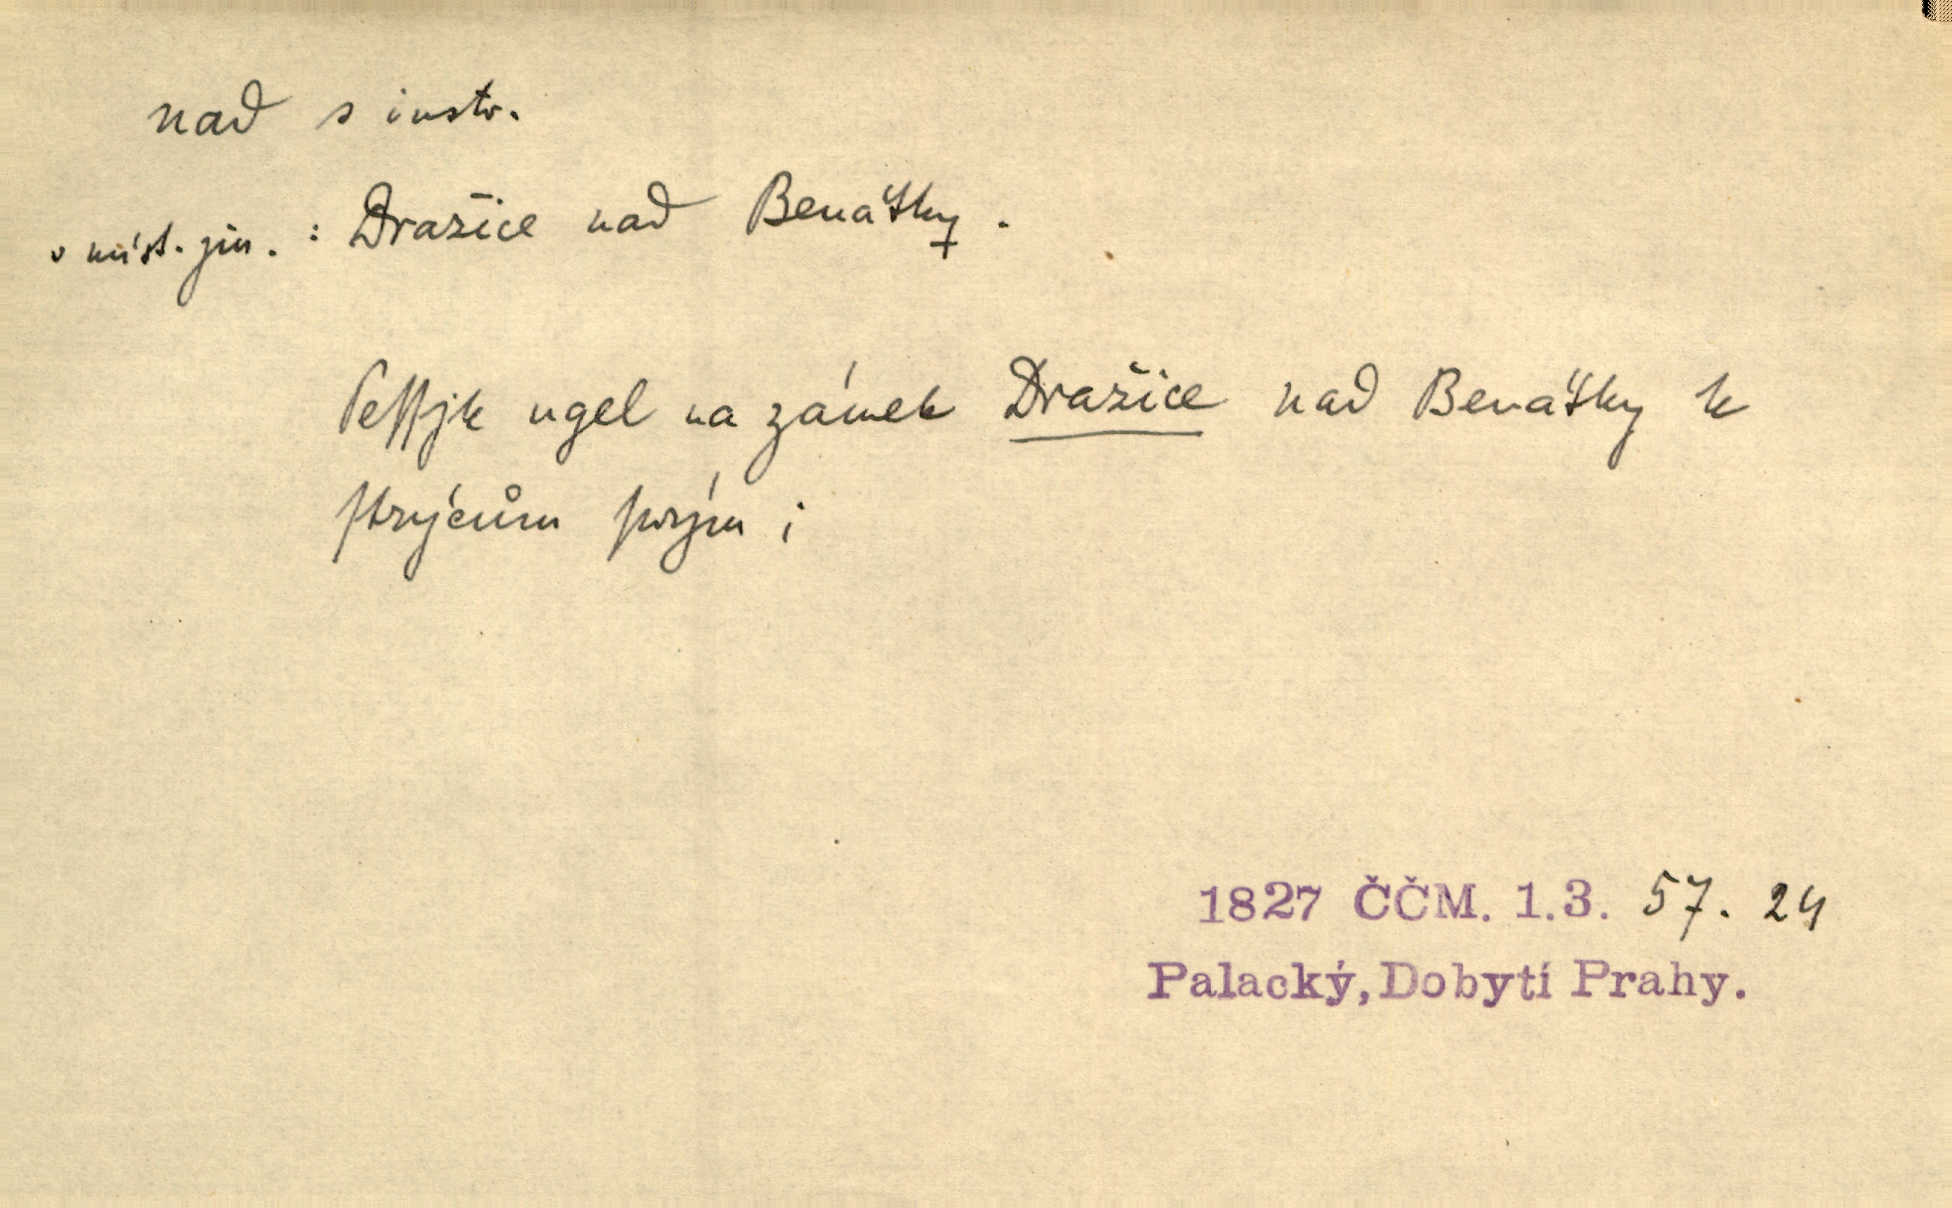 nad s instr.
v míst. jm. : Dražice nad Benátky.
Peſſjk ugel na zámek Dražice nad Benátky k
ſtrýcům ſwým i
1827 ČČM. 1.3. 57. 24
Palacký, Dobytí Prahy.